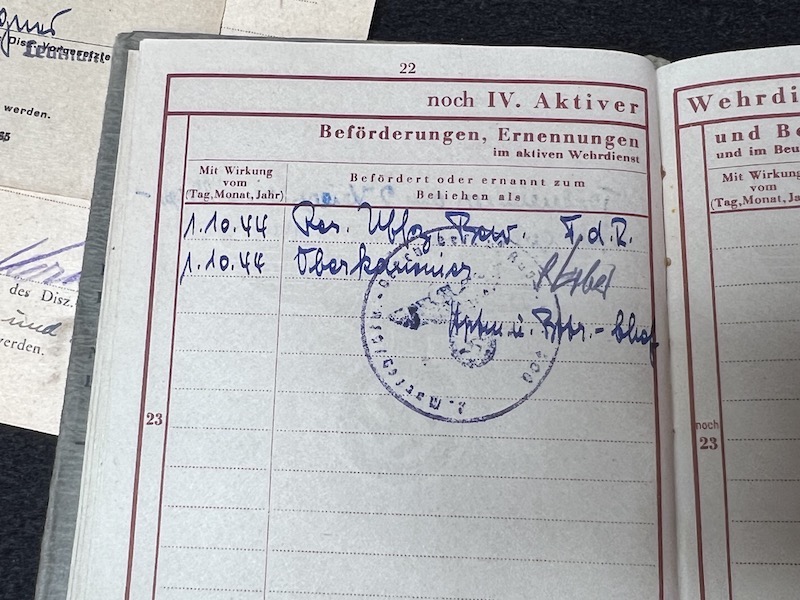 Disz. Vorgesetzte
werden.
22
noch IV. Aktiver
Beförderungen, Ernennungen
im aktiven Wehrdienst
Mit Wirkung
vom
(Tag, Monat, Jahr)
Befördert oder ernannt zum
Beliehen als
1.10.44 Res. Uffz. Bew. F. d. R.
1.10.44 Oberkanonier
u. Bttr.-Chef
23
des Disz.
und
werden.
Wehrdi
und Be
und im Beu
Mit Wirkung
vom
(Tag, Monat, Ja
noch
23